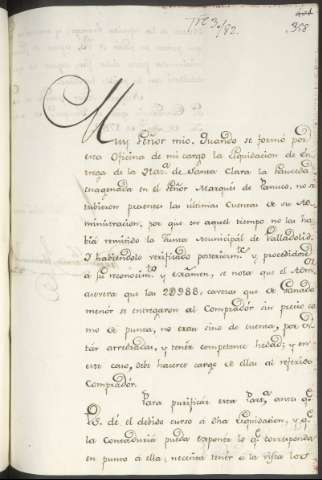 358
Muy Señor mio. Quando se formó por
esta Oficina de mi cargo la liquidacion de en-
trega de la Haz.da de Santa Clara la
enagenada en el Señor Marqués de no se
tubieron presentes las ultimas Cuentas de su Ad-
ministracion, por que en aquel tiempo no las ha-
bia remitido la Junta Municipal de Valladolid.
Y habiendolo verificado posteriorm.te y procedidose
á su reconocim.to y exámen, se nota que el Adm.
que las 20988, cavezas que de Ganado
menor se entregaron al Comprador sin precio co-
mo de punta, no eran sino de cuenta, por es-
tár arredradas, y tenér competente hedad; y en
este caso, debe hacerse cargo de ellas al referido
Comprador.
Para purificar esta Part.a antes q.e
V. dé el debido curso á dha liquidacion, y q.e
la Contaduría pueda exponer lo q.e corresponda
en punto á ella, necesita tenér á la vista los